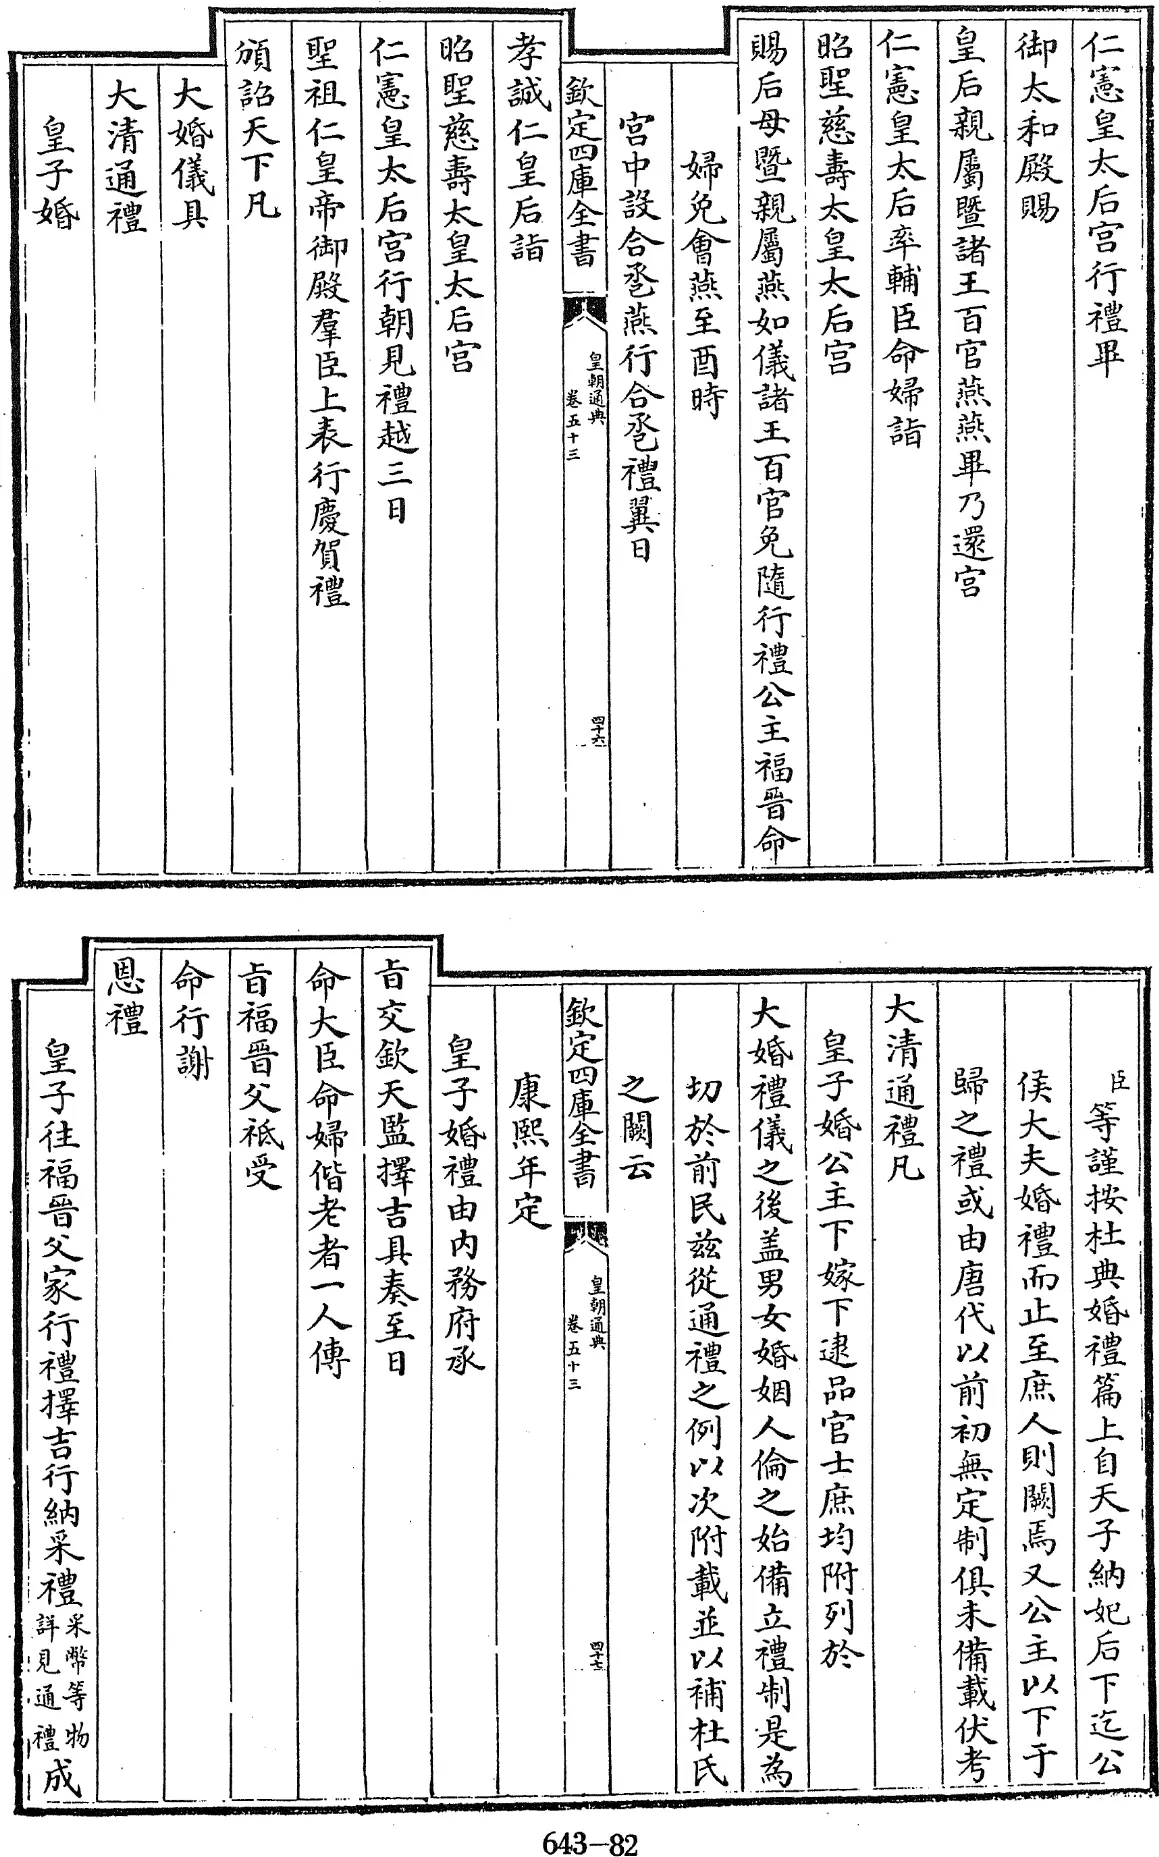 仁憲皇太后宫行禮畢
御太和殿賜
皇后親屬暨諸王百官燕燕畢乃還宫
仁憲皇太后率輔臣命婦詣
昭聖慈壽太皇太后宫
賜后母暨親屬燕如儀諸王百官免隨行禮公主福晉命
婦免會燕至酉時
宫中設合卺燕行合卺禮翼日
欽定四庫全書
皇朝通典
卷五十三
四十六
孝誠仁皇后詣
昭聖慈壽太皇太后宫
仁憲皇太后宫行朝見禮越三日
聖祖仁皇帝御殿羣臣上表行慶賀禮
頒詔天下凡
大婚儀具
大清通禮
皇子婚
臣等謹按杜典婚禮篇上自天子納妃后下迄公
侯大夫婚禮而止至庶人則闕焉又公主以下于
歸之禮或由唐代以前初無定制俱未備載伏考
大清通禮凡
皇子婚公主下嫁下逮品官士庶均附列於
大婚禮儀之後盖男女婚姻人倫之始備立禮制是為
切於前民兹從通禮之例以次附載並以補杜氏
之闕云
欽定四庫全書
皇朝通典
卷五十三
四十七
康熙年定
皇子婚禮由内務府承
旨交欽天監擇吉具奏至日
命大臣命婦偕老者一人傳
旨福晉父祗受
命行謝
恩禮
皇子往福晉父家行禮擇吉行納采禮采幣等物詳見通禮成
643-82